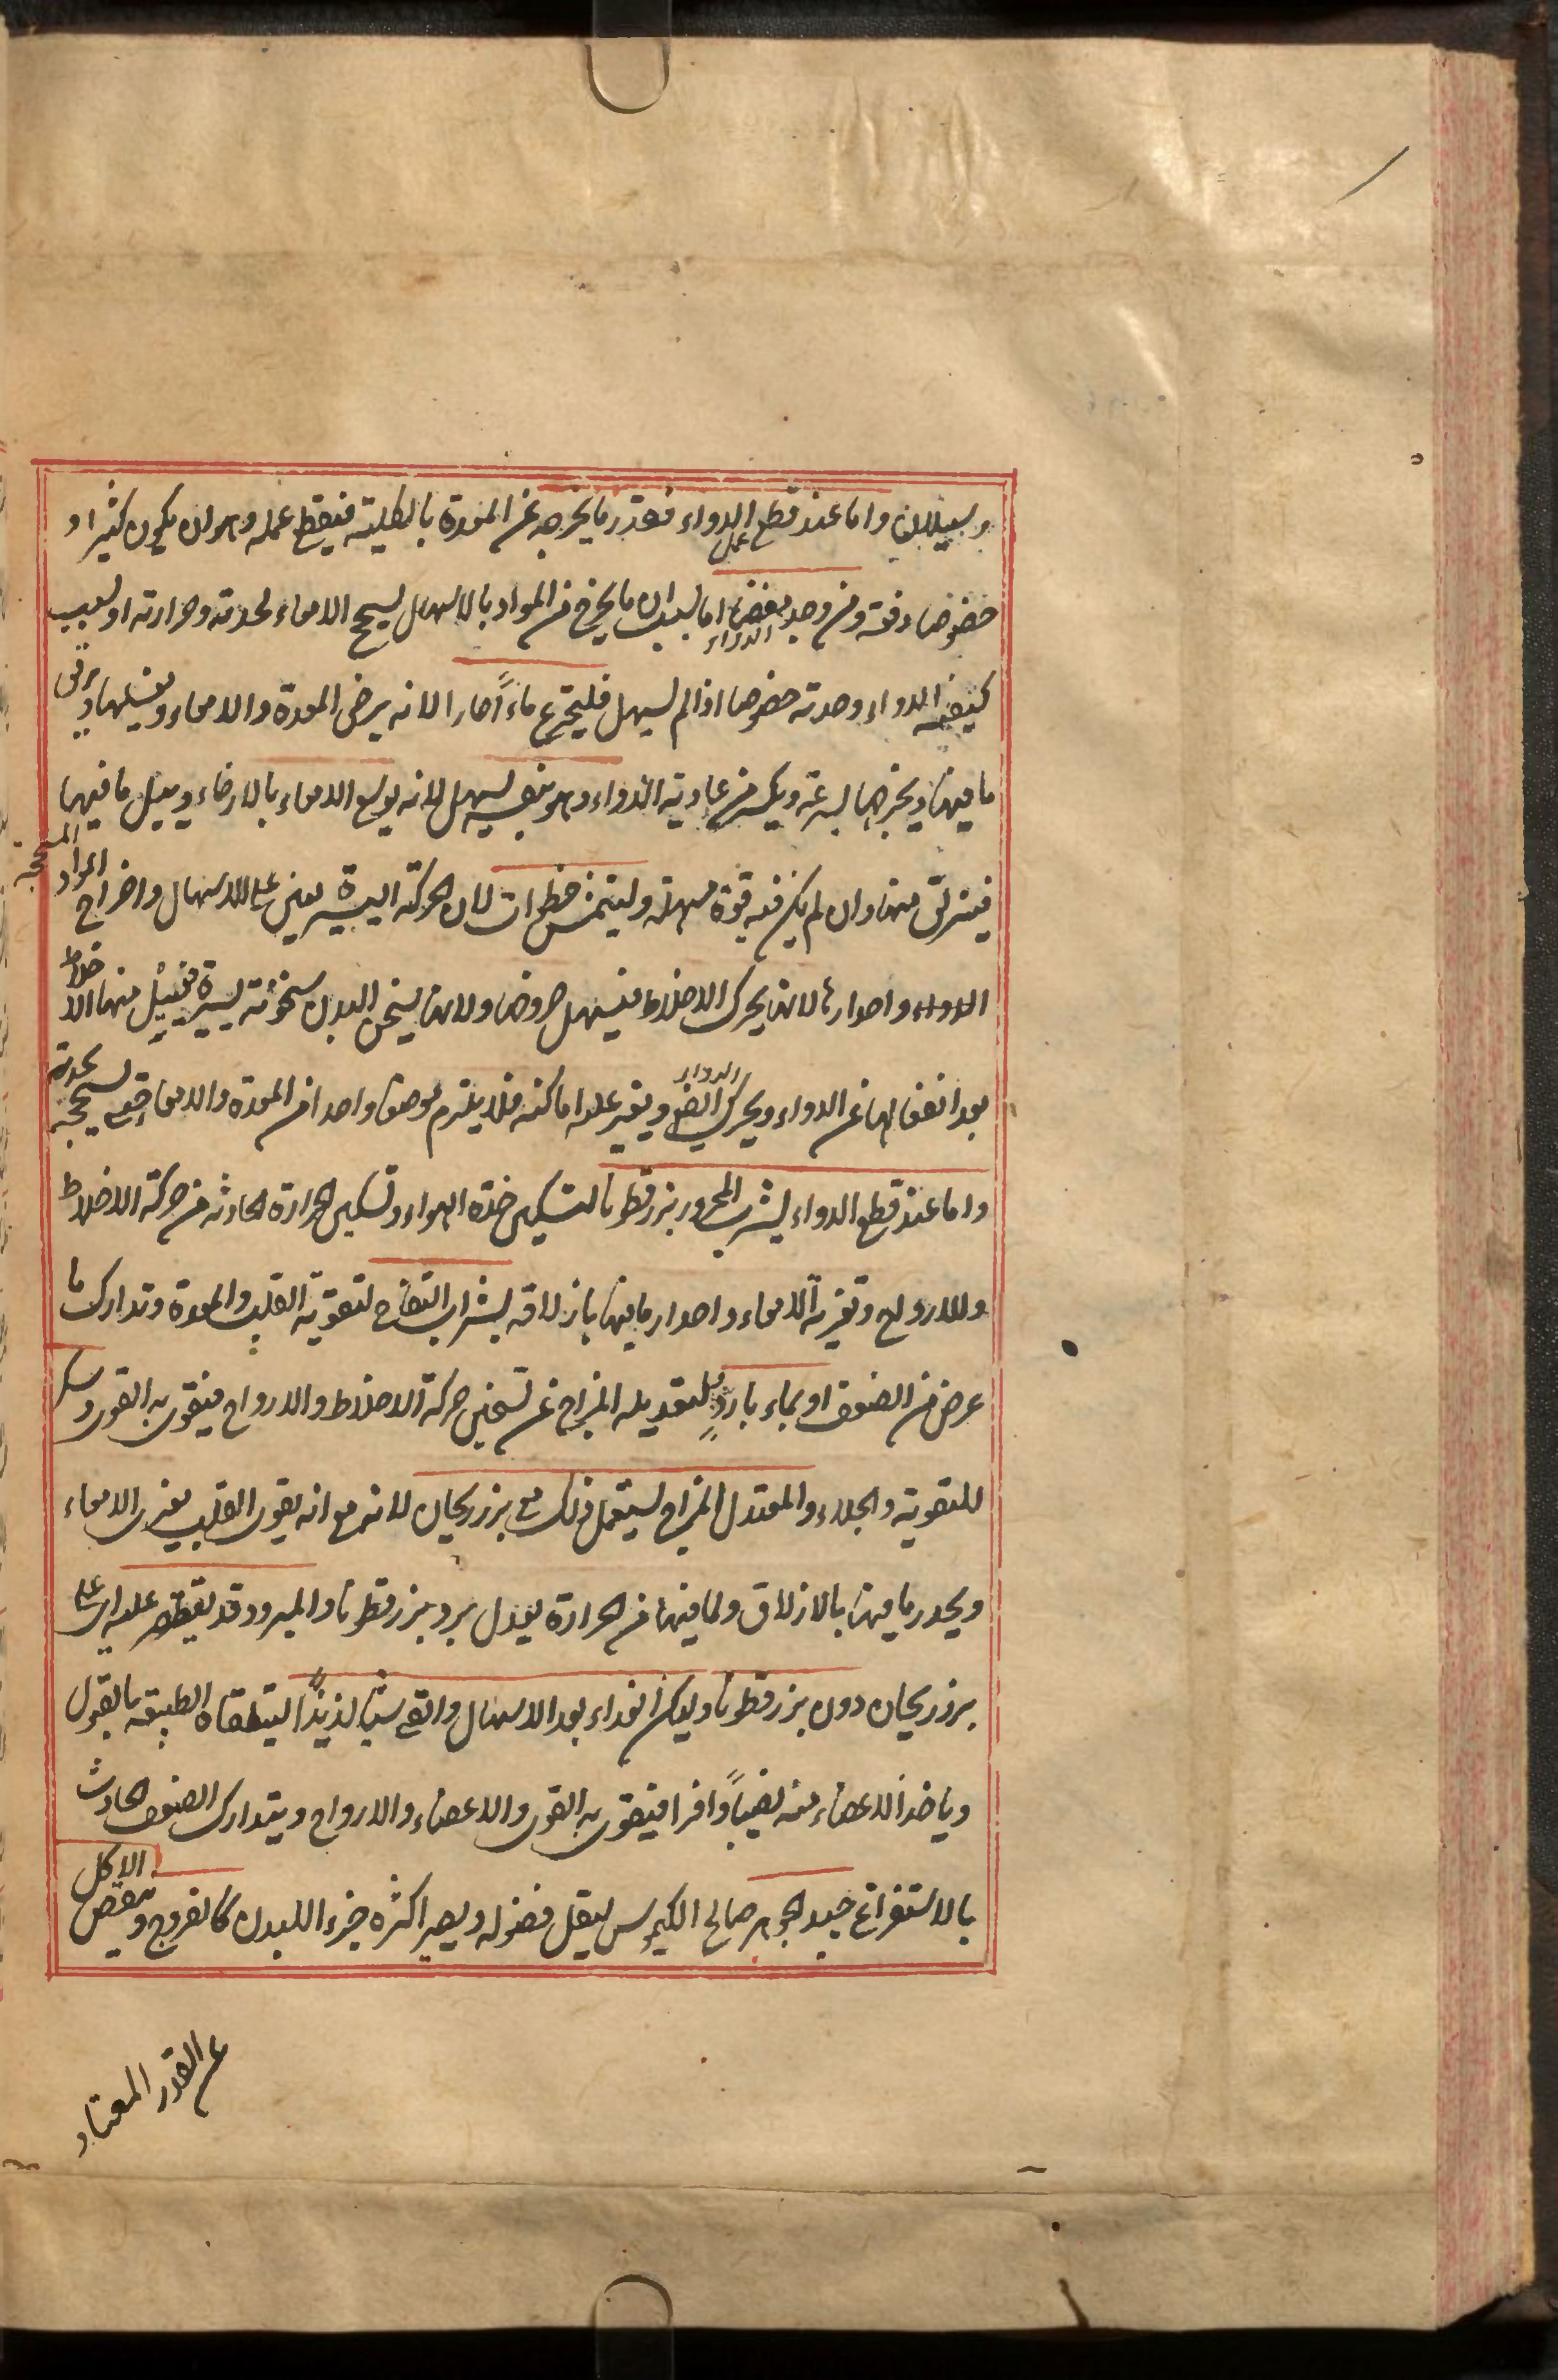 و سيلان واما عند قطع عمل الدواء فقد ربما يخرجه عن المعدة بالكلية فيقطع عمله وهو ان يكون كثيرا و
خصوصا دفعة ومن وجد مغصا الدواء اما لسبب ان ما يخرج من المواد بالاسهال يسحج الامعاء لحدته وحرارته او لسبب
كيفية الدواء وحدته خصوصا اذا لم يسهل فليتجرع ماءً حارا لانه يرخى المعدة والامعاء ويغسلها ويرقق
ما فيها ويخرجها بسرعة ويكسر من عادية الدواء وهو بنفسه يسهل لانه يوسع الامعاء بالارخاء ويسيل ما فيها
فينزلق منها وان لم يكن فيه قوة مسهلة وليتمش خطوات لان الحركة اليسيرة تعين على الاسهال واخراج المواد المسحجة
الدواء واحدارها لانها يحرك الاخلاط فيسهل خروجها ولانها يسخن البدن سخونة يسيرة فيسيل منها الاخلاط
بعد انفعالها عن الدواء ويحرك الدواء ايضا ويغير عليه اماكنه فلا يلزم موضعا واحدا من المعدة والامعاء حتى يسحجه بحدته
واما عند قطع الدواء يشرب المحرور بزر قطونا لتسكين حدة الدواء وتسكين الحرارة الحادثة من حركة الاخلاط
والارواح وتغرية الامعاء واحدار ما فيها بازلاقه بشراب التفاح لتقوية القلب والمعدة وتدارك ما
عرض من الضعف او بماء بارد لتعديله المزاج عن تسخين حركة الاخلاط والارواح فيتقوى به القوى وسكر
للتقوية والجلاء والمعتدل المزاج يستعمل ذلك مع بزر ريحان لانه مع انه يقوى القلب يغرى الامعاء
ويحدر ما فيها بالازلاق ولما فيها من الحرارة يعدل برد بزر قطونا والمبرود قد يقتصر عليه اى على
بزر ريحان دون بزر قطونا وليكن الغذاء بعد الاسهال والقئ شيئا لذيذًا ليتلقاه الطبيعة بالقبول
وياخذ الاعضاء منه نصيبًا وافرا فيتقوى به القوى والاعضاء والارواح ويتدارك الضعف الحادث
بالاستفراغ جيد الجوهر صالح الكيموس ليقل فضوله ويصير اكثره جزء البدن كالفروج وينقص الاكل
عن القدر المعتاد